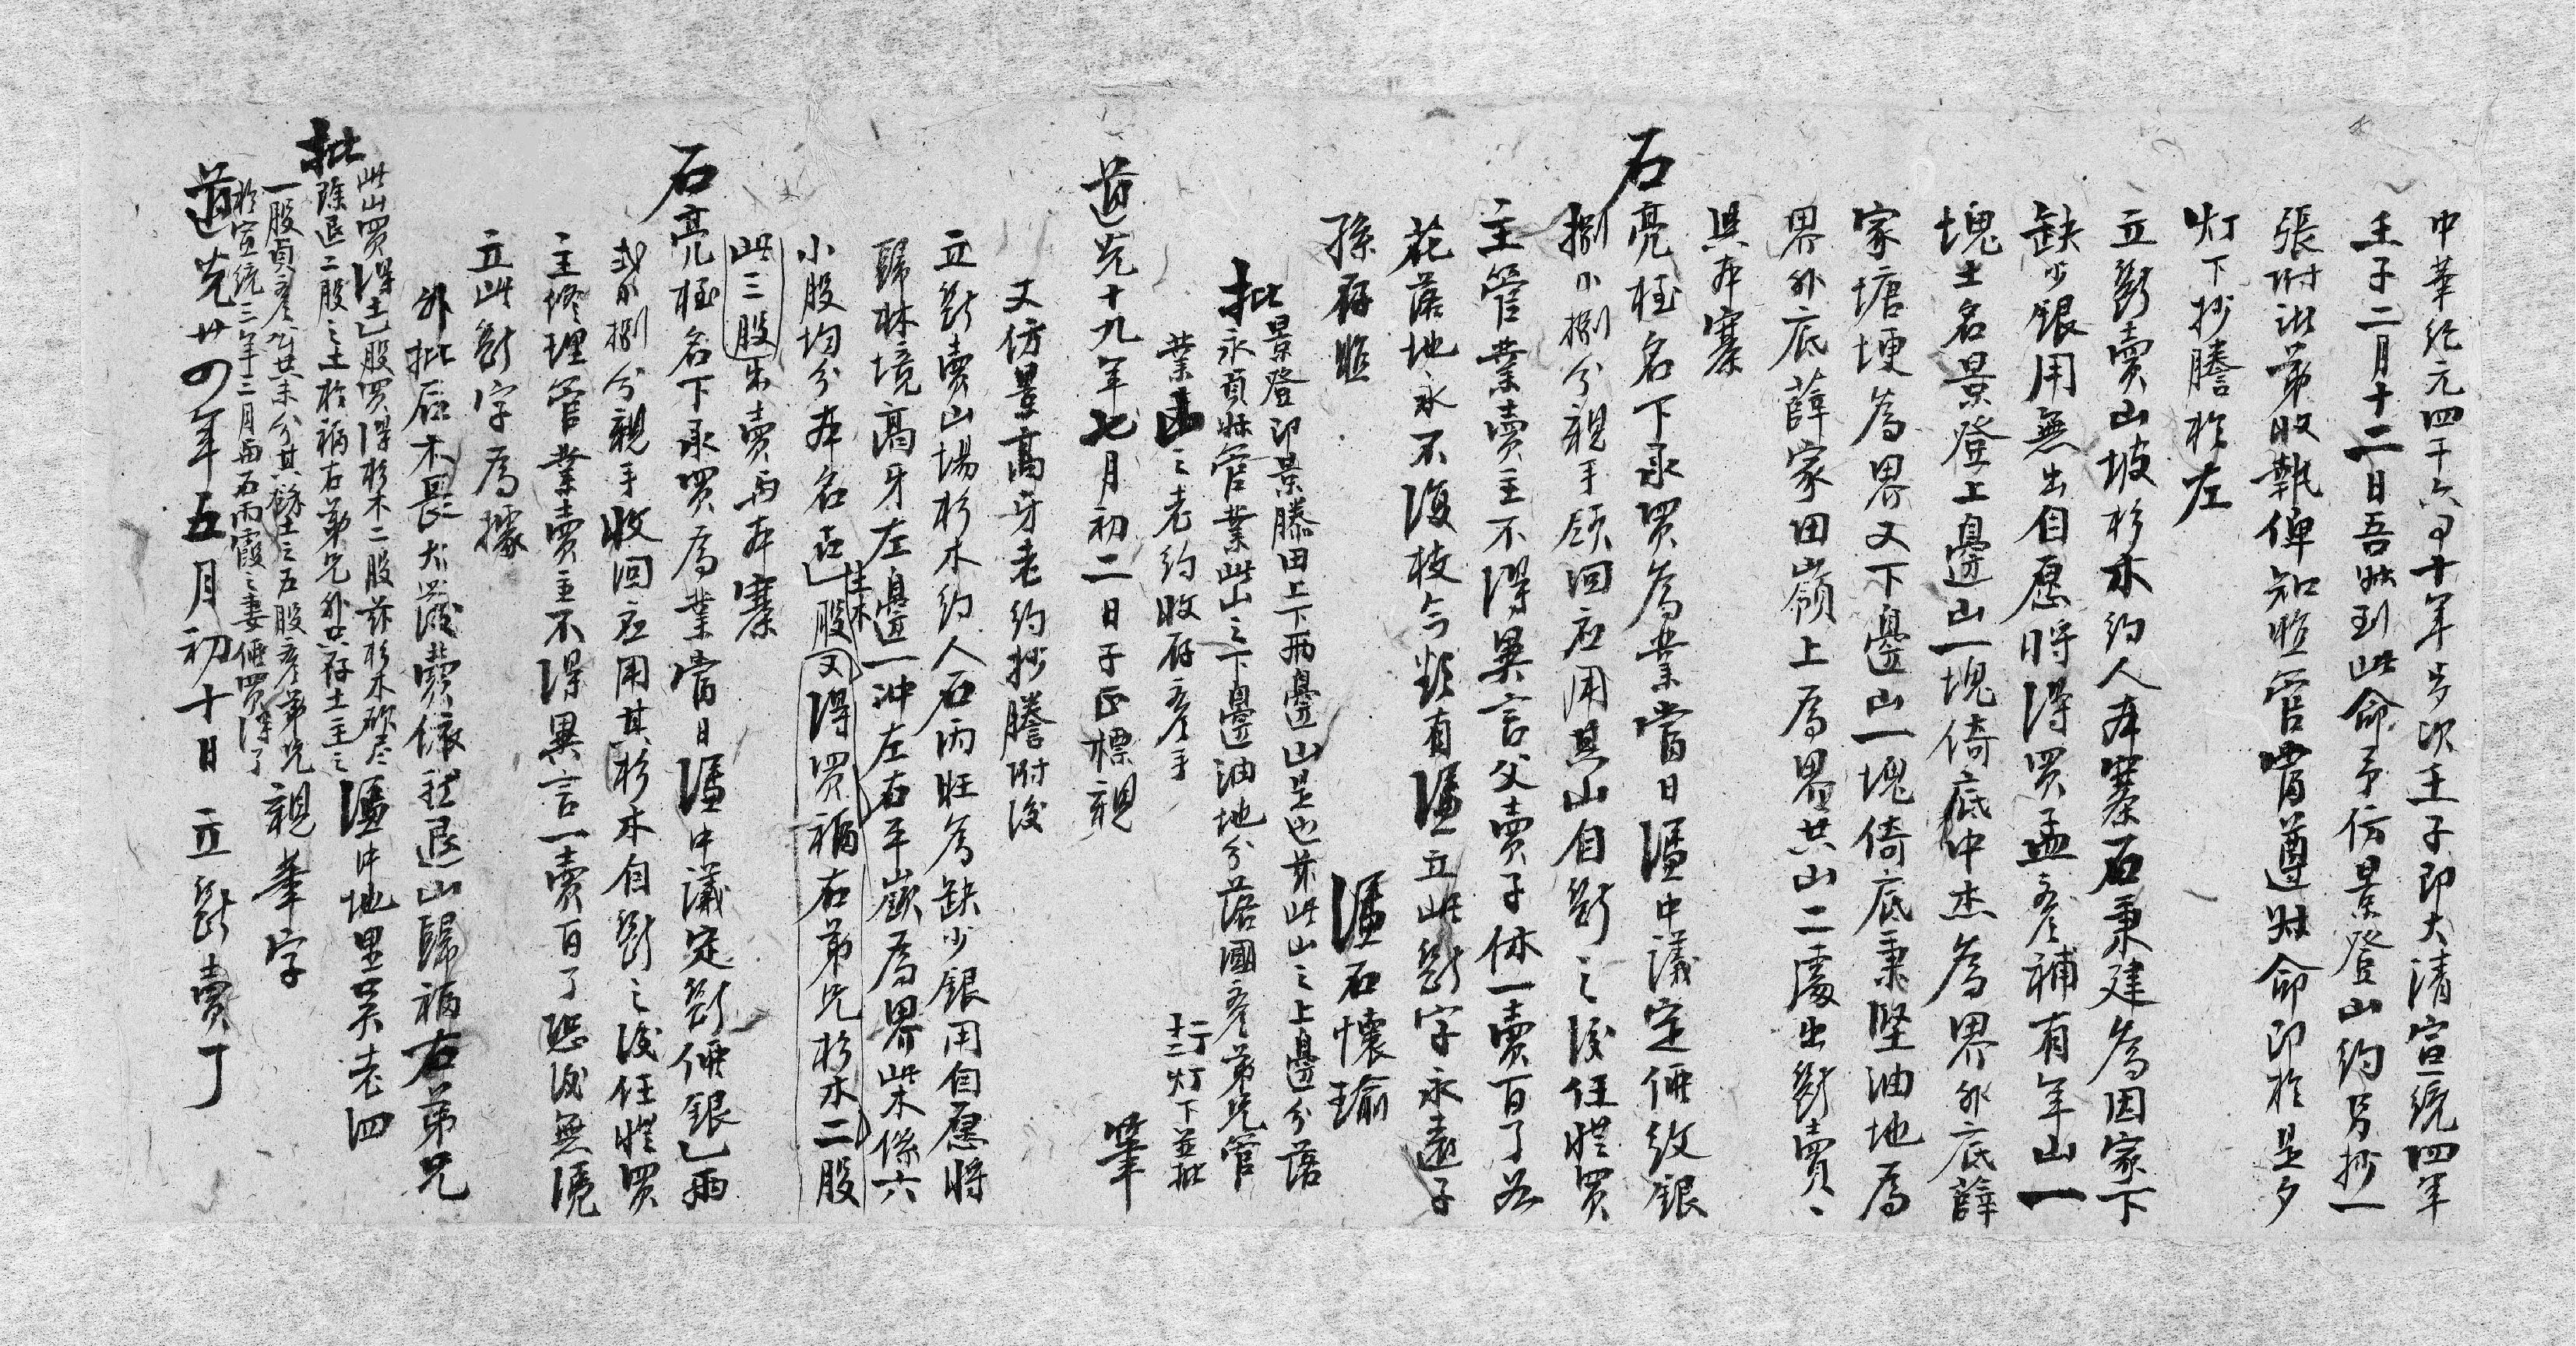 中華紀元四千六百十年岁次壬子即大清宣統四年
壬子二月十二日吾姒到此命予仿景登山約另抄一
張附潢弟收執俾知照管嘗遵姒命即於是夕
灯下抄謄於左
立斷賣山坡杉木約人本寨石秉建為因家下
缺少銀用無出自愿將得買孟彦補有年山一
塊土名景登上邊山一塊倚底中杰為界外底薛
家塘埂為界又下邊山一塊倚底秉堅油地為
界外底薛家田嶺上為界共山二處出斷賣、
與本寨
石亮極名下承買為業當日憑中議定価紋銀
捌卜捌分親手領回应用其山自斷之後任憑買
主管業賣主不得異言父賣子休一賣百了如
花落地永不復枝今欲有憑立此斷字永遠子
孫存照
憑 石懷瑜
批 景登即景滕田上下两邊山是也茲此山之上邊分落
永貞姒管業此山之下邊油地分落國彦弟兄管
業山之老約收存彦手
十二灯下並批
道光十九年七月初二日子正標親 筆
又仿景高牙老約抄謄附後
立斷賣山塲杉木約人石丙旺為缺少銀用自愿將
歸林境高牙左邊一冲左右平嶺為界柴木係六
小股均分本名占乙股又得買補右弟兄杉木二股
土木
此三股出賣与本寨
石亮極名下承買為業當日憑中議定斷価銀乙两
弍卜捌分親手收回应用其杉木自斷之後任憑買
主修理管業賣主不得異言一賣百了恐後無憑
立此斷字為據
外批后木長大發賣依禮退山歸補右弟兄
批 此山買得土乙股買得杉木二股茲杉木砍尽
除退二股之土於補右弟兄外只存土主之
一股貞彦等共未分其餘土之五股彦弟兄
於宣統三年三月与石雨霞之妻価買得了
憑中地里吴老四
親筆字
道光廿四年五月初十日 立斷賣了